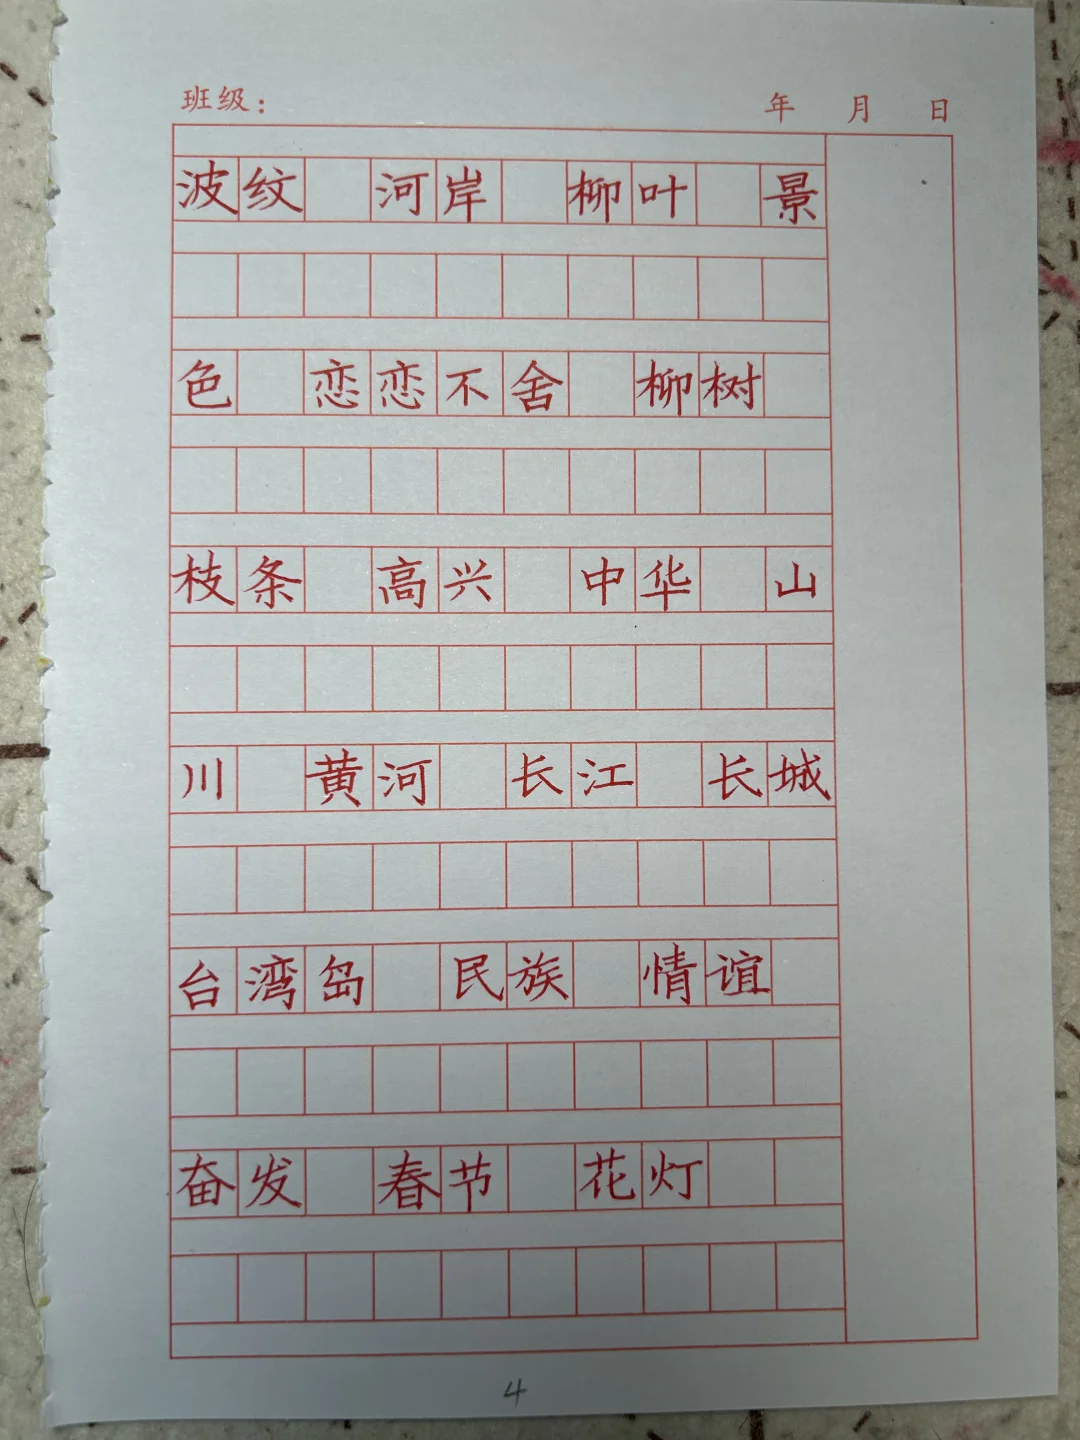 班级： 年 月 日
波纹 河岸 柳叶 景
色 恋恋不舍 柳树
枝条 高兴 中华 山
川 黄河 长江 长城
台湾岛 民族 情谊
奋发 春节 花灯
4